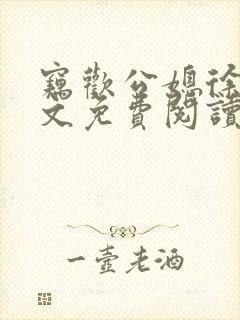 竊歡公媳徐
文免費閱讀
一壺老酒